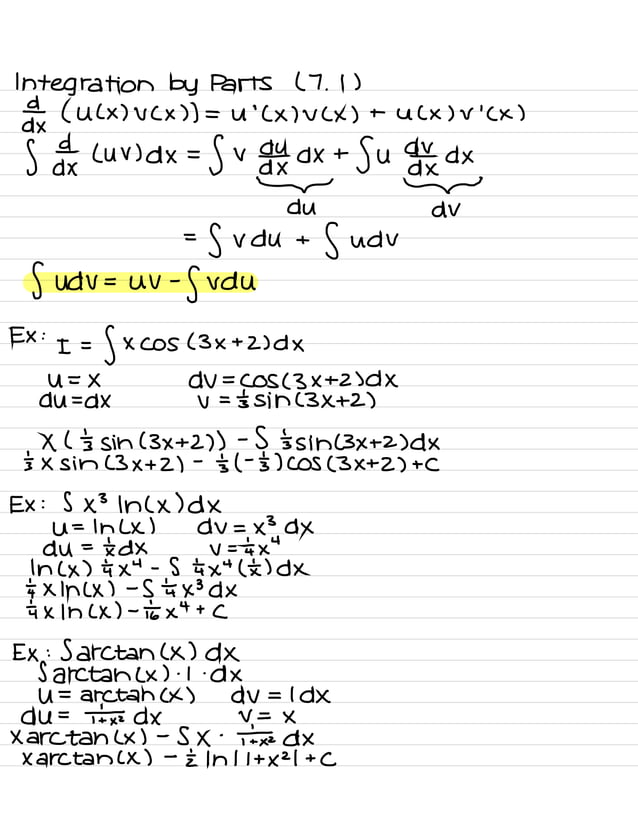 Integration by Parts (7.1)
d/dx (u(x)v(x)) = u'(x)v(x) + u(x)v'(x)
∫ d/dx (uv)dx = ∫ v du/dx dx + ∫ u dv/dx dx
du dv
= ∫ vdu + ∫ udv
∫ udv = uv - ∫ vdu
Ex: I = ∫ x cos (3x+2)dx
u = x dv = cos(3x+2)dx
du = dx v = 1/3 sin(3x+2)
x(1/3 sin(3x+2)) - ∫ 1/3 sin(3x+2)dx
1/3 x sin(3x+2) - 1/3(-1/3)cos(3x+2) + C
Ex: ∫ x³ ln(x)dx
u = ln(x) dv = x³ dx
du = 1/x dx v = 1/4 x⁴
ln(x) 1/4 x⁴ - ∫ 1/4 x⁴ (1/x)dx
1/4 x ln(x) - ∫ 1/4 x³ dx
1/4 x ln(x) - 1/16 x⁴ + C
Ex: ∫ arctan(x) dx
∫ arctan(x) · 1 · dx
u = arctan(x) dv = 1dx
du = 1/1+x² dx v = x
x arctan(x) - ∫ x · 1/1+x² dx
x arctan(x) - 1/2 ln|1+x²| + C